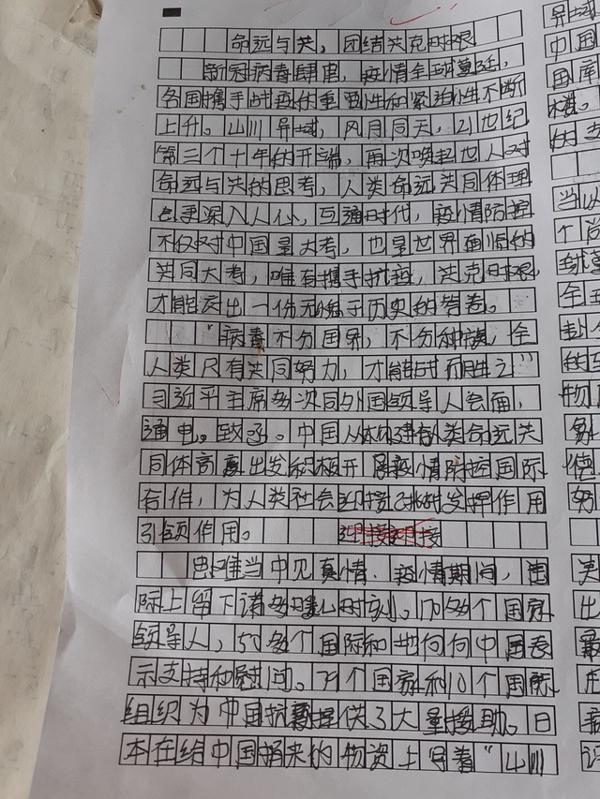 命运与共，团结共克时艰
新冠病毒肆虐，疫情全球蔓延，
各国携手战疫的重要性和紧迫性不断
上升。山川异域，风月同天，21世纪
第三个十年的开端，再次唤起世人对
命运与共的思考，人类命运共同体理
念更深入人心，互通时代，疫情防控
不仅对中国是大考，也是世界面临的
共同大考，唯有携手抗疫，共克时艰，
才能交出一份无愧于历史的答卷。
"病毒不分国界，不分种族，全
人类只有共同努力，才能战而胜之"
习近平主席多次同外国领导人会面，
通电。致函。中国从构建人类命运共
同体高度出发积极开展疫情防控国际
合作，为人类社会迎接挑战发挥作用
引领作用。
思难当中见真情，疫情期间，国
际上留下诸多暖心时刻。170多个国家
领导人，50多个国际和地何何中国表
示支持和慰问。79个国家和10个国际
组织为中国抗疫提供了大量援助。日
本在给中国捐来的物资上写着"山川
异域
中国
国库
当以
个尝
球蔓
全王
卦
的
物
务
德
努
吴
出
最